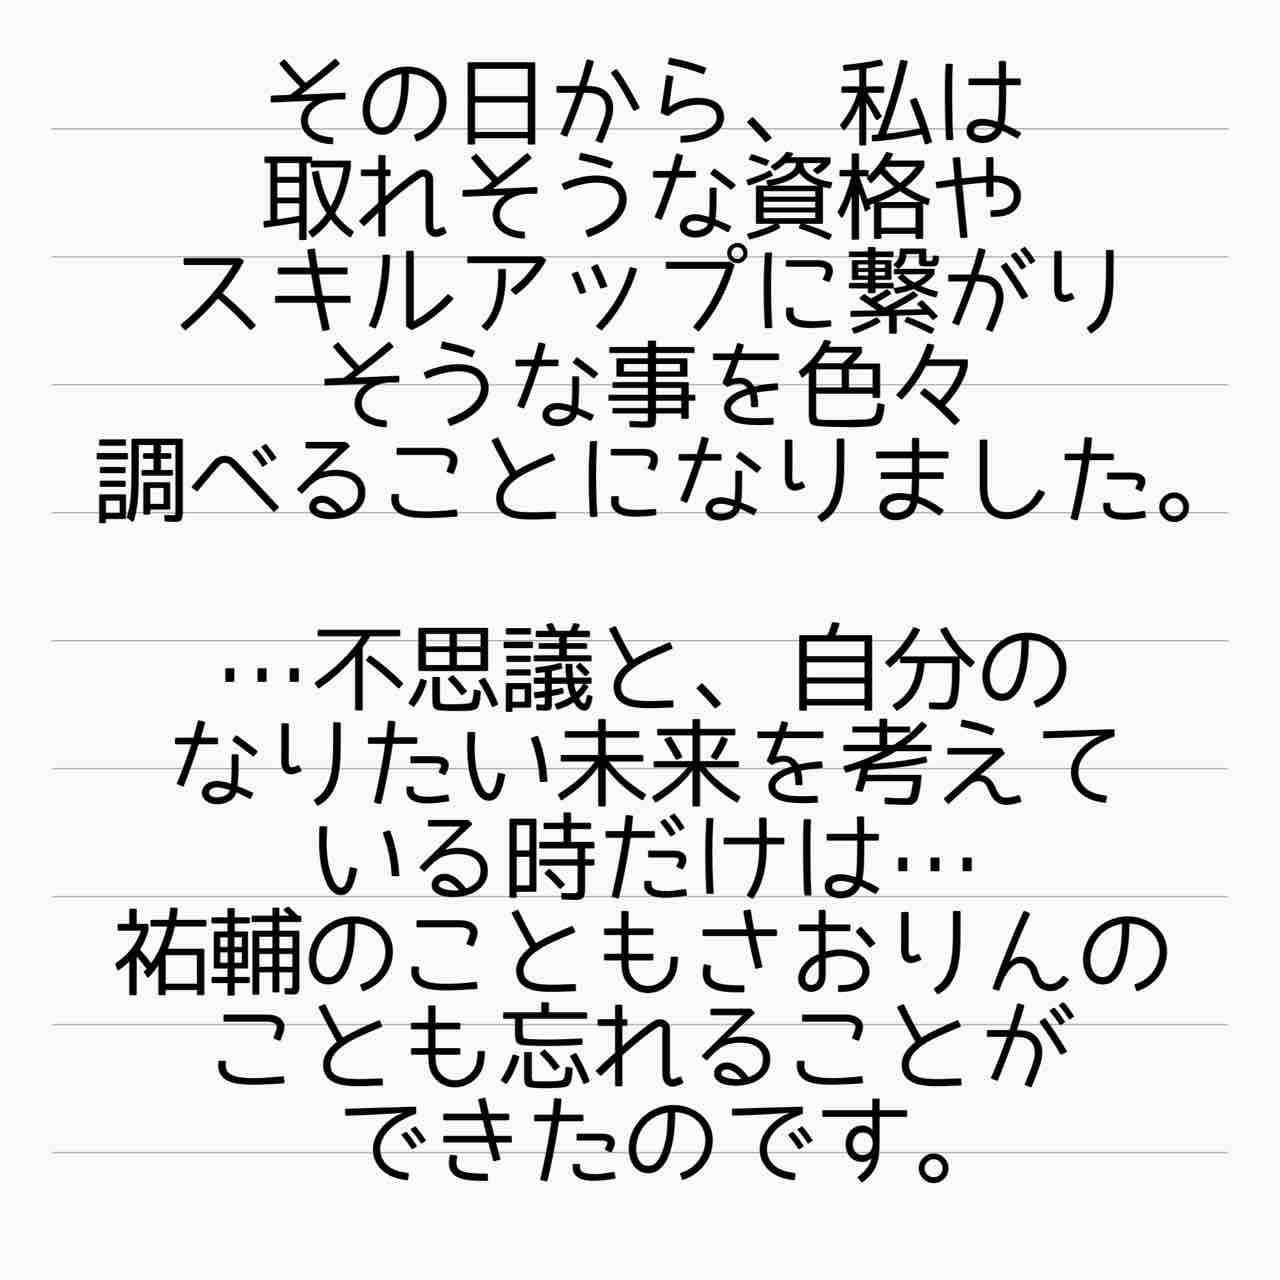 その日から、私は
取れそうな資格や
スキルアップに繋がり
そうな事を色々
調べることになりました。
…不思議と、自分の
なりたい未来を考えて
いる時だけは…
祐輔のこともさおりんの
ことも忘れることが
できたのです。